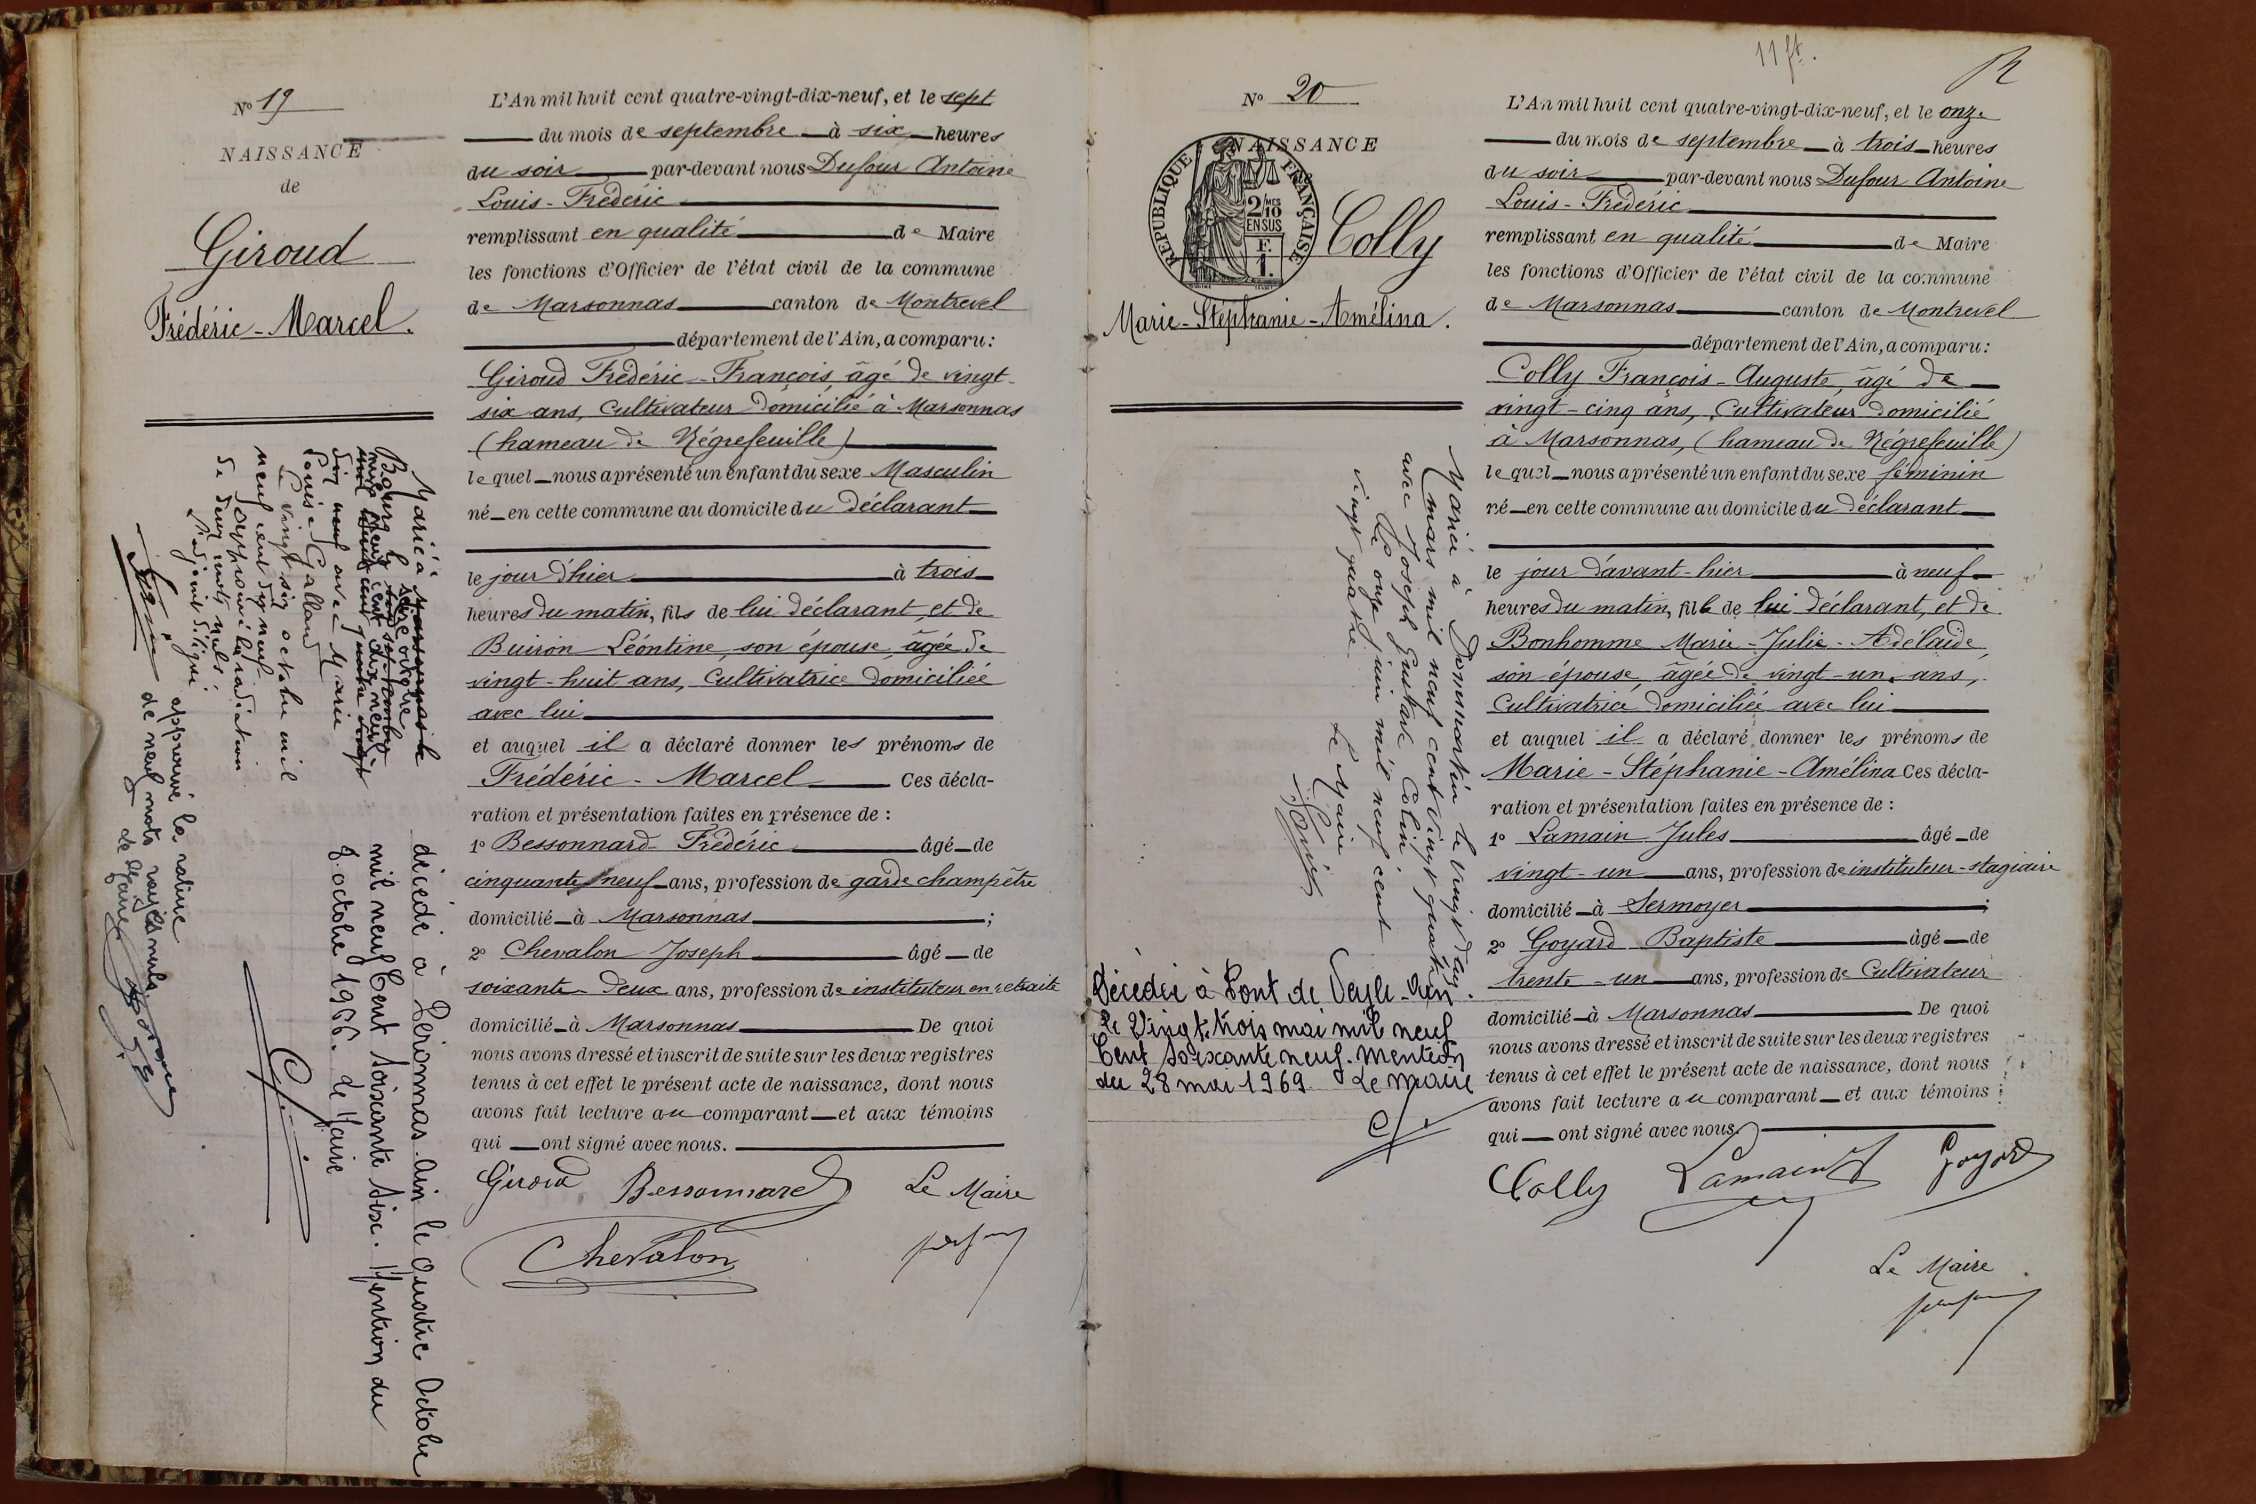 Nº 19
NAISSANCE
de
Giroud
Frédéric - Marcel.
L'An mil huit cent quatre-vingt-dix-neuf, et le sept
du mois de septembre à six heures
du soir par-devant nous Dufour Antoine
Louis - Frédéric
remplissant en qualité de Maire
les fonctions d'Officier de l'état civil de la commune
de Marsonnas canton de Montrevel
département de l'Ain, a comparu:
Giroud Frédéric - François, âgé de vingt-
six ans, Cultivateur domicilié à Marsonnas
(hameau de Négrefeuille)
lequel nous a présenté un enfant du sexe Masculin
né en cette commune au domicile du déclarant
le jour d'hier à trois
heures du matin, fils de lui déclarant, et de
Buiron Léontine, son épouse, âgée de
vingt-huit ans, Cultivatrice domiciliée
avec lui
et auquel il a déclaré donner les prénoms de
Frédéric - Marcel Ces décla-
ration et présentation faites en présence de :
1º Bessonnard Frédéric âgé de
cinquante neuf ans, profession de garde champêtre
domicilié à Marsonnas ;
2º Chevalon Joseph âgé de
soixante-deux ans, profession de instituteur en retraite
domicilié à Marsonnas De quoi
nous avons dressé et inscrit de suite sur les deux registres
tenus à cet effet le présent acte de naissance, dont nous
avons fait lecture au comparant et aux témoins
qui ont signé avec nous.
Giroud Bessonnard Le Maire
Chevalon
Marié à Marsonnas le
Bourg le seize octobre
mil neuf cent dix neuf
dix neuf avec Marie
Louise Galland
Le vingt six octobre mil
neuf cent dix neuf
approuvé la radiation
de deux mots nuls
L'adjoint délégué
approuvé la rature
de neuf mots rayés nuls
Le Maire
décédé à Péronnas-Ain le Quatre Octobre
mil neuf Cent Soixante Six. Mention du
8 octobre 1966. Le Maire
11 ft.
Nº 20
NAISSANCE
REPUBLIQUE FRANÇAISE
2/10 MES
EN SUS
F.
1.
Colly
Marie - Stéphanie - Amélina.
L'An mil huit cent quatre-vingt-dix-neuf, et le onze
du mois de septembre à trois heures
du soir par-devant nous Dufour Antoine
Louis - Frédéric
remplissant en qualité de Maire
les fonctions d'Officier de l'état civil de la commune
de Marsonnas canton de Montrevel
département de l'Ain, a comparu:
Colly François - Auguste, âgé de
vingt-cinq ans, Cultivateur domicilié
à Marsonnas, (hameau de Négrefeuille)
lequel nous a présenté un enfant du sexe féminin
né en cette commune au domicile du déclarant
le jour d'avant-hier à neuf
heures du matin, fille de lui déclarant, et de
Bonhomme Marie - Julie - Adélaïde,
son épouse, âgée de vingt-un ans,
Cultivatrice domiciliée avec lui
et auquel il a déclaré donner les prénoms de
Marie - Stéphanie - Amélina Ces décla-
ration et présentation faites en présence de :
1º Lamain Jules âgé de
vingt-un ans, profession de instituteur-stagiaire
domicilié à Sermoyer ;
2º Goyard Baptiste âgé de
trente-un ans, profession de Cultivateur
domicilié à Marsonnas De quoi
nous avons dressé et inscrit de suite sur les deux registres
tenus à cet effet le présent acte de naissance, dont nous
avons fait lecture au comparant et aux témoins
qui ont signé avec nous.
Colly Lamain Goyard
Le Maire
Mariée à Dommartin le vingt deux
mars mil neuf cent vingt quatre
avec Joseph Gustave Colin
Le onze juin mil neuf cent
vingt quatre
Le Maire
Décédée à Pont de Veyle-Ain.
Le Vingt trois mai mil neuf
Cent soixante neuf. Mention
du 28 mai 1969 Le Maire